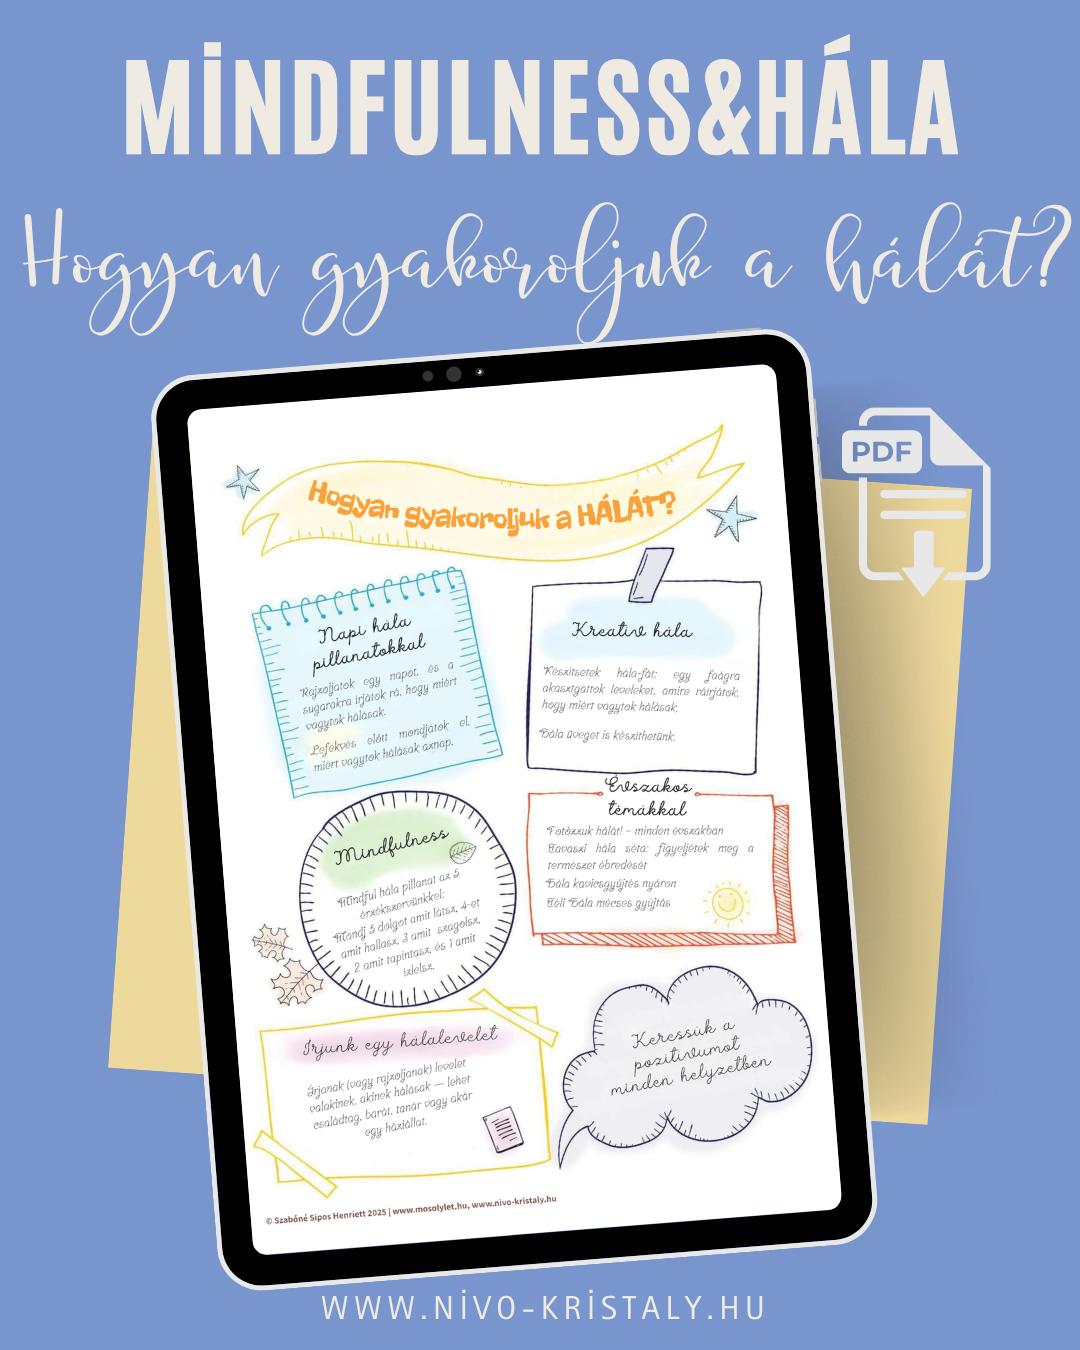 MİNDFULNESS&HÁLA
Hogyan gyakoroljuk a hálát?
PDF
Hogyan gyakoroljuk a HÁLÁT?
Napi hála
pillanatokkal
Rajzoljatok egy napot, és a
sugarakra írjátok rá, hogy miért
vagytok hálásak.
Lefekvés előtt mondjátok el,
miért vagytok hálásak aznap.
Kreatív hála
Készítsetek hála-fát: egy faágra
akasztgattok leveleket, amire ráírjátok,
hogy miért vagytok hálásak.
Hála üveget is készíthetünk.
Mindfulness
Mindful hála pillanat az 5
érzékszervünkkel:
Mondj 5 dolgot amit látsz, 4-et
amit hallasz, 3 amit szagolsz,
2 amit tapintasz, és 1 amit
ízlelsz.
Évszakos
témákkal
Fotózzuk hálát! – minden évszakban
Tavaszi hála séta: figyeljétek meg a
természet ébredését
Hála kavicsgyűjtés nyáron
Téli Hála mécses gyújtás
Írjunk egy hálalevelet
Írjanak (vagy rajzoljanak) levelet
valakinek, akinek hálásak — lehet
családtag, barát, tanár vagy akár
egy háziállat.
Keressük a
pozitívumot
minden helyzetben
© Szabóné Sipos Henriett 2025 | www.mosolylet.hu, www.nivo-kristaly.hu
WWW.NİVO-KRİSTALY.HU